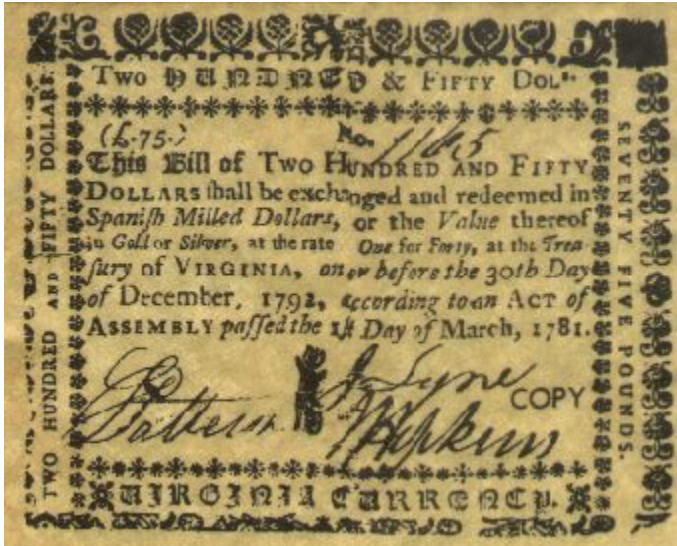 Two HUNDRED & FIFTY DOLrs.
(£.75.)
No. 11665
This Bill of Two HUNDRED AND FIFTY
DOLLARS ſhall be exchanged and redeemed in
Spaniſh Milled Dollars, or the Value thereof
in Gold or Silver, at the rate One for Forty, at the Trea-
ſury of VIRGINIA, on or before the 30th Day
of December, 1792, according to an ACT of
ASSEMBLY paſſed the 1ſt Day of March, 1781.
J. Lyne
COPY
Hopkins
VIRGINIA CURRENCY.
TWO HUNDRED AND FIFTY DOLLARS.
SEVENTY FIVE POUNDS.